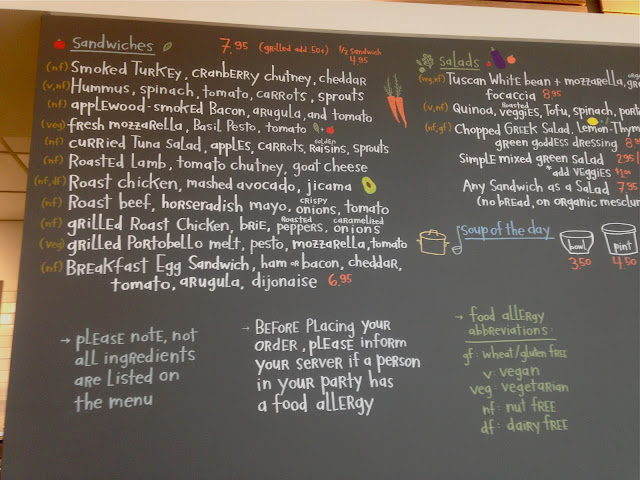 Sandwiches 7.95 (grilled add .50¢) 1/2 Sandwich 4.95
(nf) Smoked Turkey, cranberry chutney, cheddar
(v,nf) Hummus, spinach, tomato, carrots, sprouts
(nf) applewood-smoked Bacon, arugula, and tomato
(veg) fresh mozzarella, Basil Pesto, tomato
(nf) curried Tuna salad, apples, carrots, golden raisins, sprouts
(nf) Roasted Lamb, tomato chutney, goat cheese
(nf,df) Roast chicken, mashed avocado, jicama
(nf) Roast beef, horseradish mayo, crispy onions, tomato
(nf) grilled Roast Chicken, brie, Roasted peppers, caramelized onions
(veg) grilled Portobello melt, pesto, mozzarella, tomato
(nf) Breakfast Egg Sandwich, ham or bacon, cheddar,
tomato, arugula, dijonaise 6.95
→ please note, not
all ingredients
are listed on
the menu
→ Before placing your
order, please inform
your server if a person
in your party has
a food allergy
salads
(veg,nf) Tuscan White bean + mozzarella,
focaccia 8.95
(v,nf) Quinoa, Roasted veggies, Tofu, spinach,
(nf,gf) Chopped Greek Salad, Lemon-Thyme
green goddess dressing
Simple mixed green Salad 2.95
*add veggies $1.00
Any Sandwich as a Salad 7.95
(no bread, on organic mesclun
Soup of the day
bowl 3.50
pint 4.50
→ food allergy
abbreviations:
gf: wheat/gluten free
v: vegan
veg: vegetarian
nf: nut free
df: dairy free